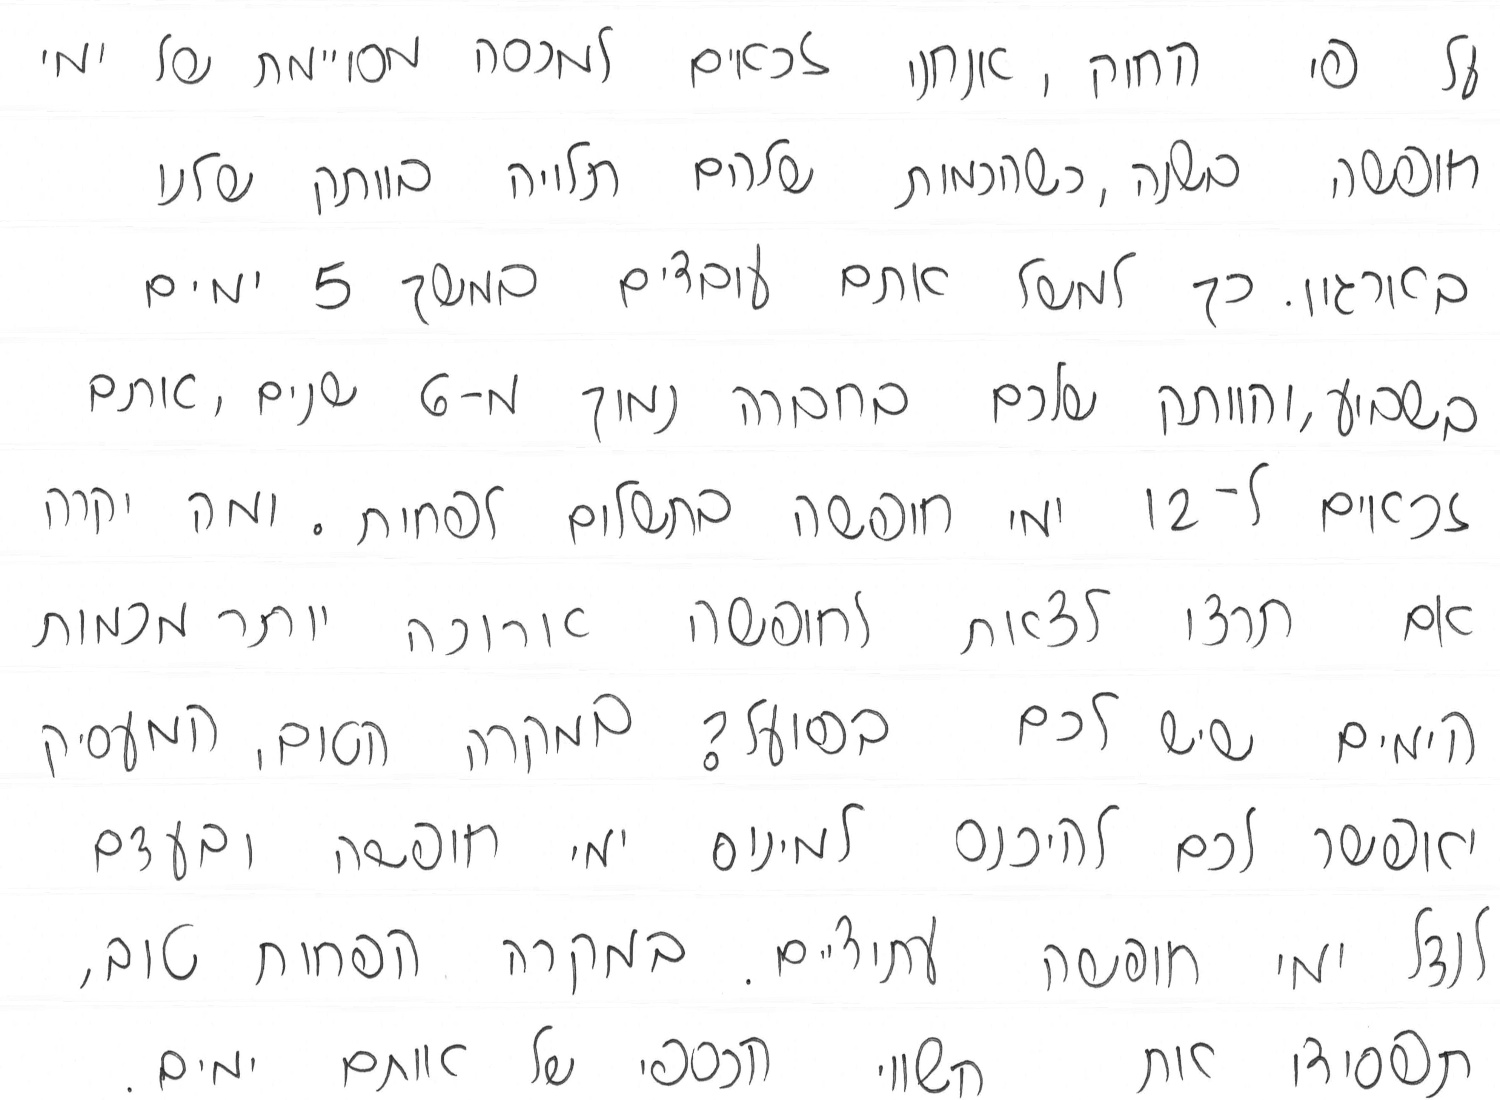 על פי החוק, אנחנו זכאים למכסה מסויימת של ימי
חופשה בשנה, כשהכמות שלהם תלויה בוותק שלנו
בארגון. כך למשל אתם עובדים במשך 5 ימים
בשבוע, והוותק שלכם בחברה נמוך מ-6 שנים, אתם
זכאים ל-12 ימי חופשה בתשלום לפחות. ומה יקרה
אם תרצו לצאת לחופשה ארוכה יותר מכמות
הימים שיש לכם בפועל? במקרה הטוב, המעסיק
יאפשר לכם להיכנס למינוס ימי חופשה ובעצם
לנצל ימי חופשה עתידיים. במקרה הפחות טוב,
תפסידו את השווי הכספי של אותם ימים.